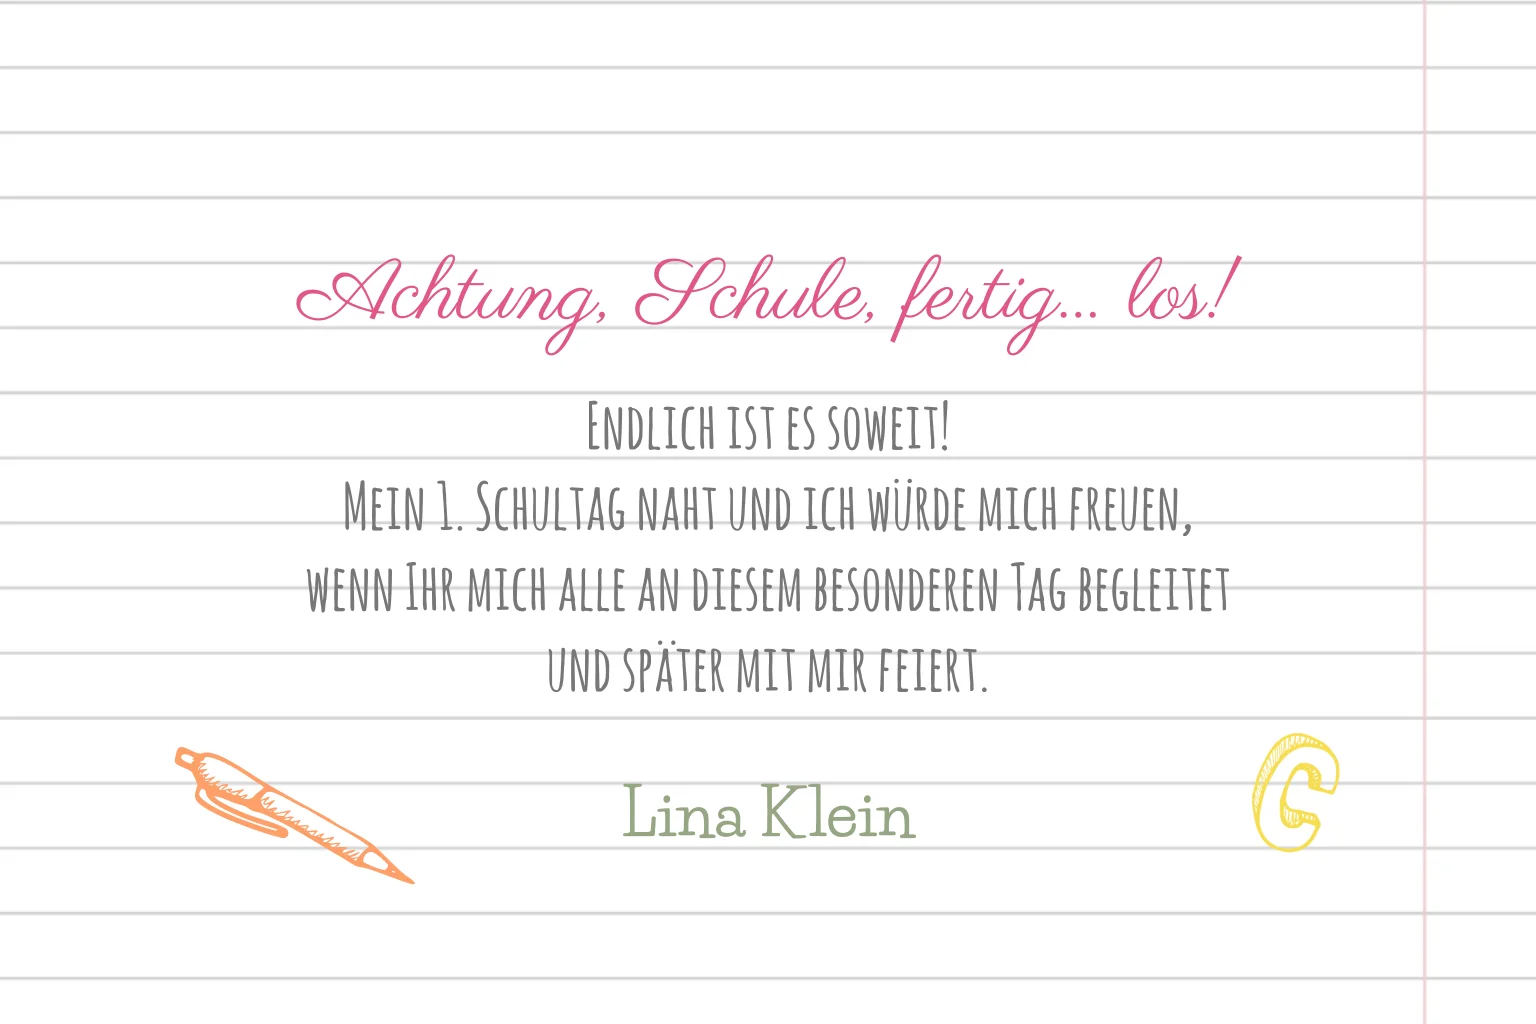 Achtung, Schule, fertig... los!
Endlich ist es soweit!
Mein 1. Schultag naht und ich würde mich freuen,
wenn Ihr mich alle an diesem besonderen Tag begleitet
und später mit mir feiert.
Lina Klein
C